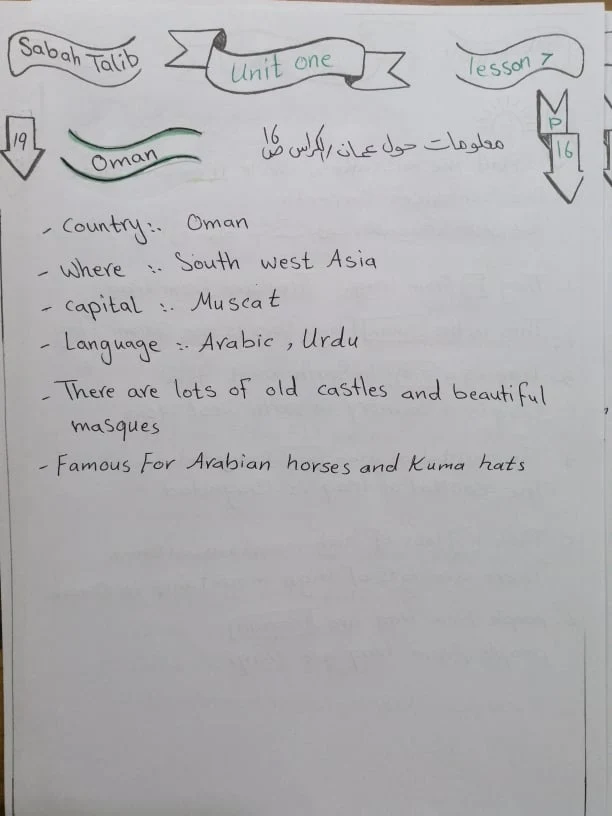 Sabah Talib
Unit one
lesson 7
19
Oman
معلومات حول عمان / الكراس ص 16
P
16
- Country:. Oman
- Where :. South west Asia
- capital :. Muscat
- Language :. Arabic , Urdu
- There are lots of old castles and beautiful
masques
- Famous For Arabian horses and Kuma hats